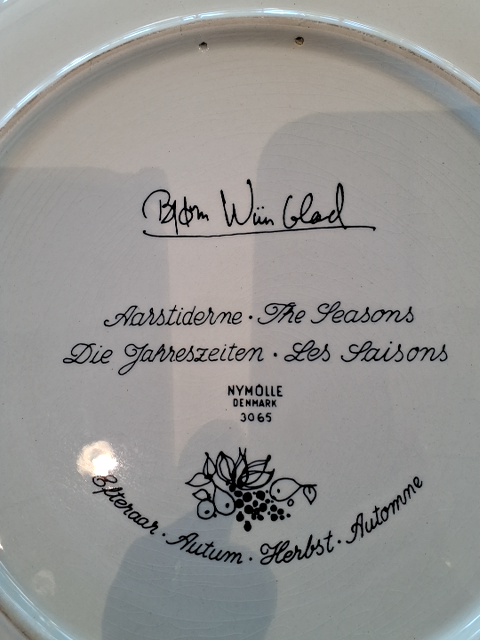 Bjørn Wiinblad
Aarstiderne · The Seasons
Die Jahreszeiten · Les Saisons
NYMÖLLE
DENMARK
3065
Efteraar · Autum · Herbst · Automne